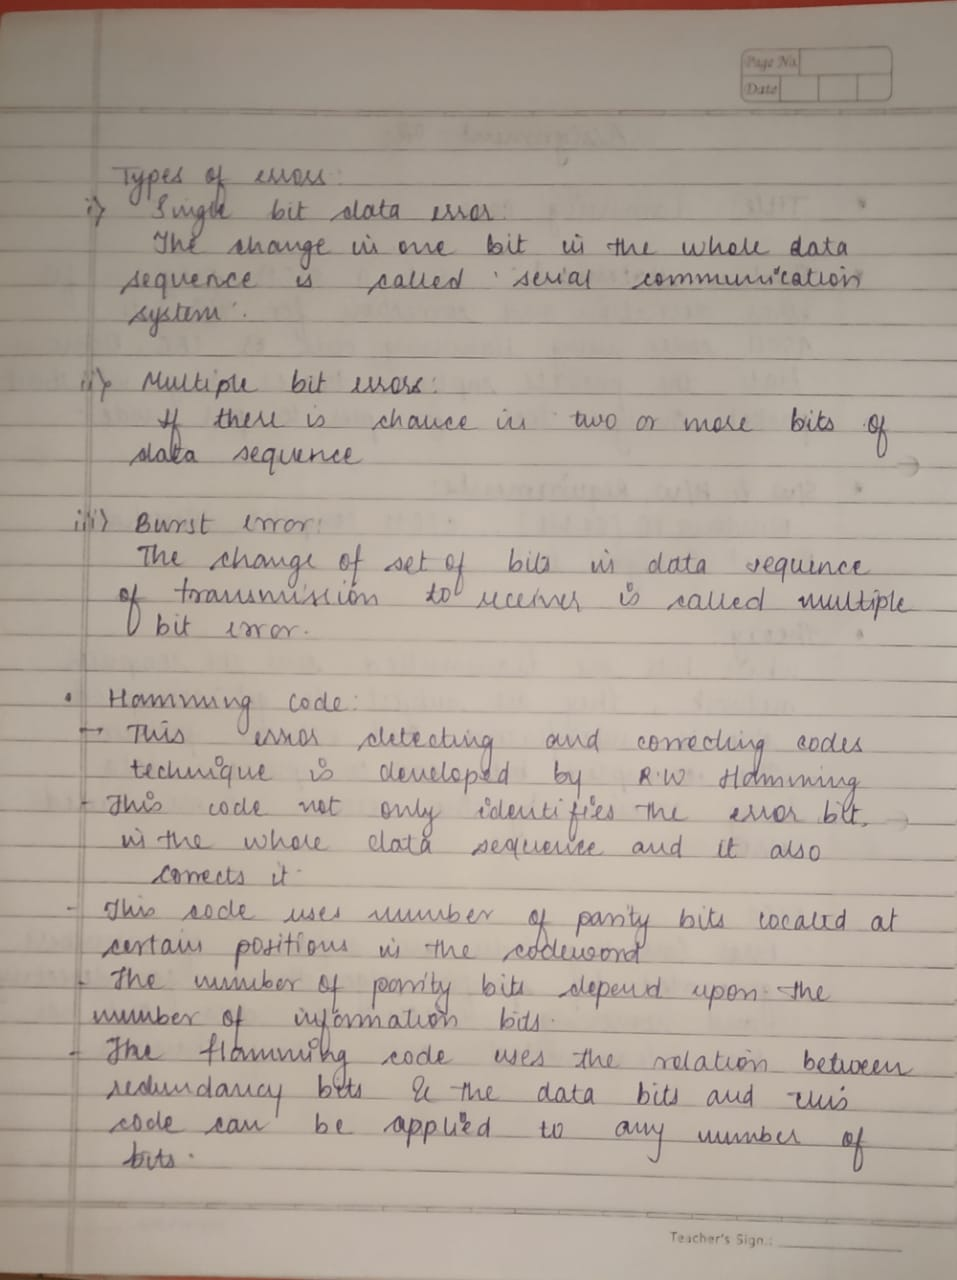 Page No.
Date
Types of errors:
i) Single bit data error:
The change in one bit in the whole data
sequence is called 'serial communication
system'.
ii) Multiple bit errors:
If there is chance in two or more bits of
data sequence
iii) Burst error:
The change of set of bits in data sequince
of transmission to receiver is called multiple
bit error.
• Hamming code:
→ This error detecting and correcting codes
technique is developed by R.W Hamming
- This code not only identifies the error bit,
in the whole data sequence and it also
corrects it.
- This code uses number of parity bits located at
certain positions in the codeword
- The number of parity bits depend upon the
number of information bits.
- The Hamming code uses the relation between
redundancy bits & the data bits and this
code can be applied to any number of
bits.
Teacher's Sign.: